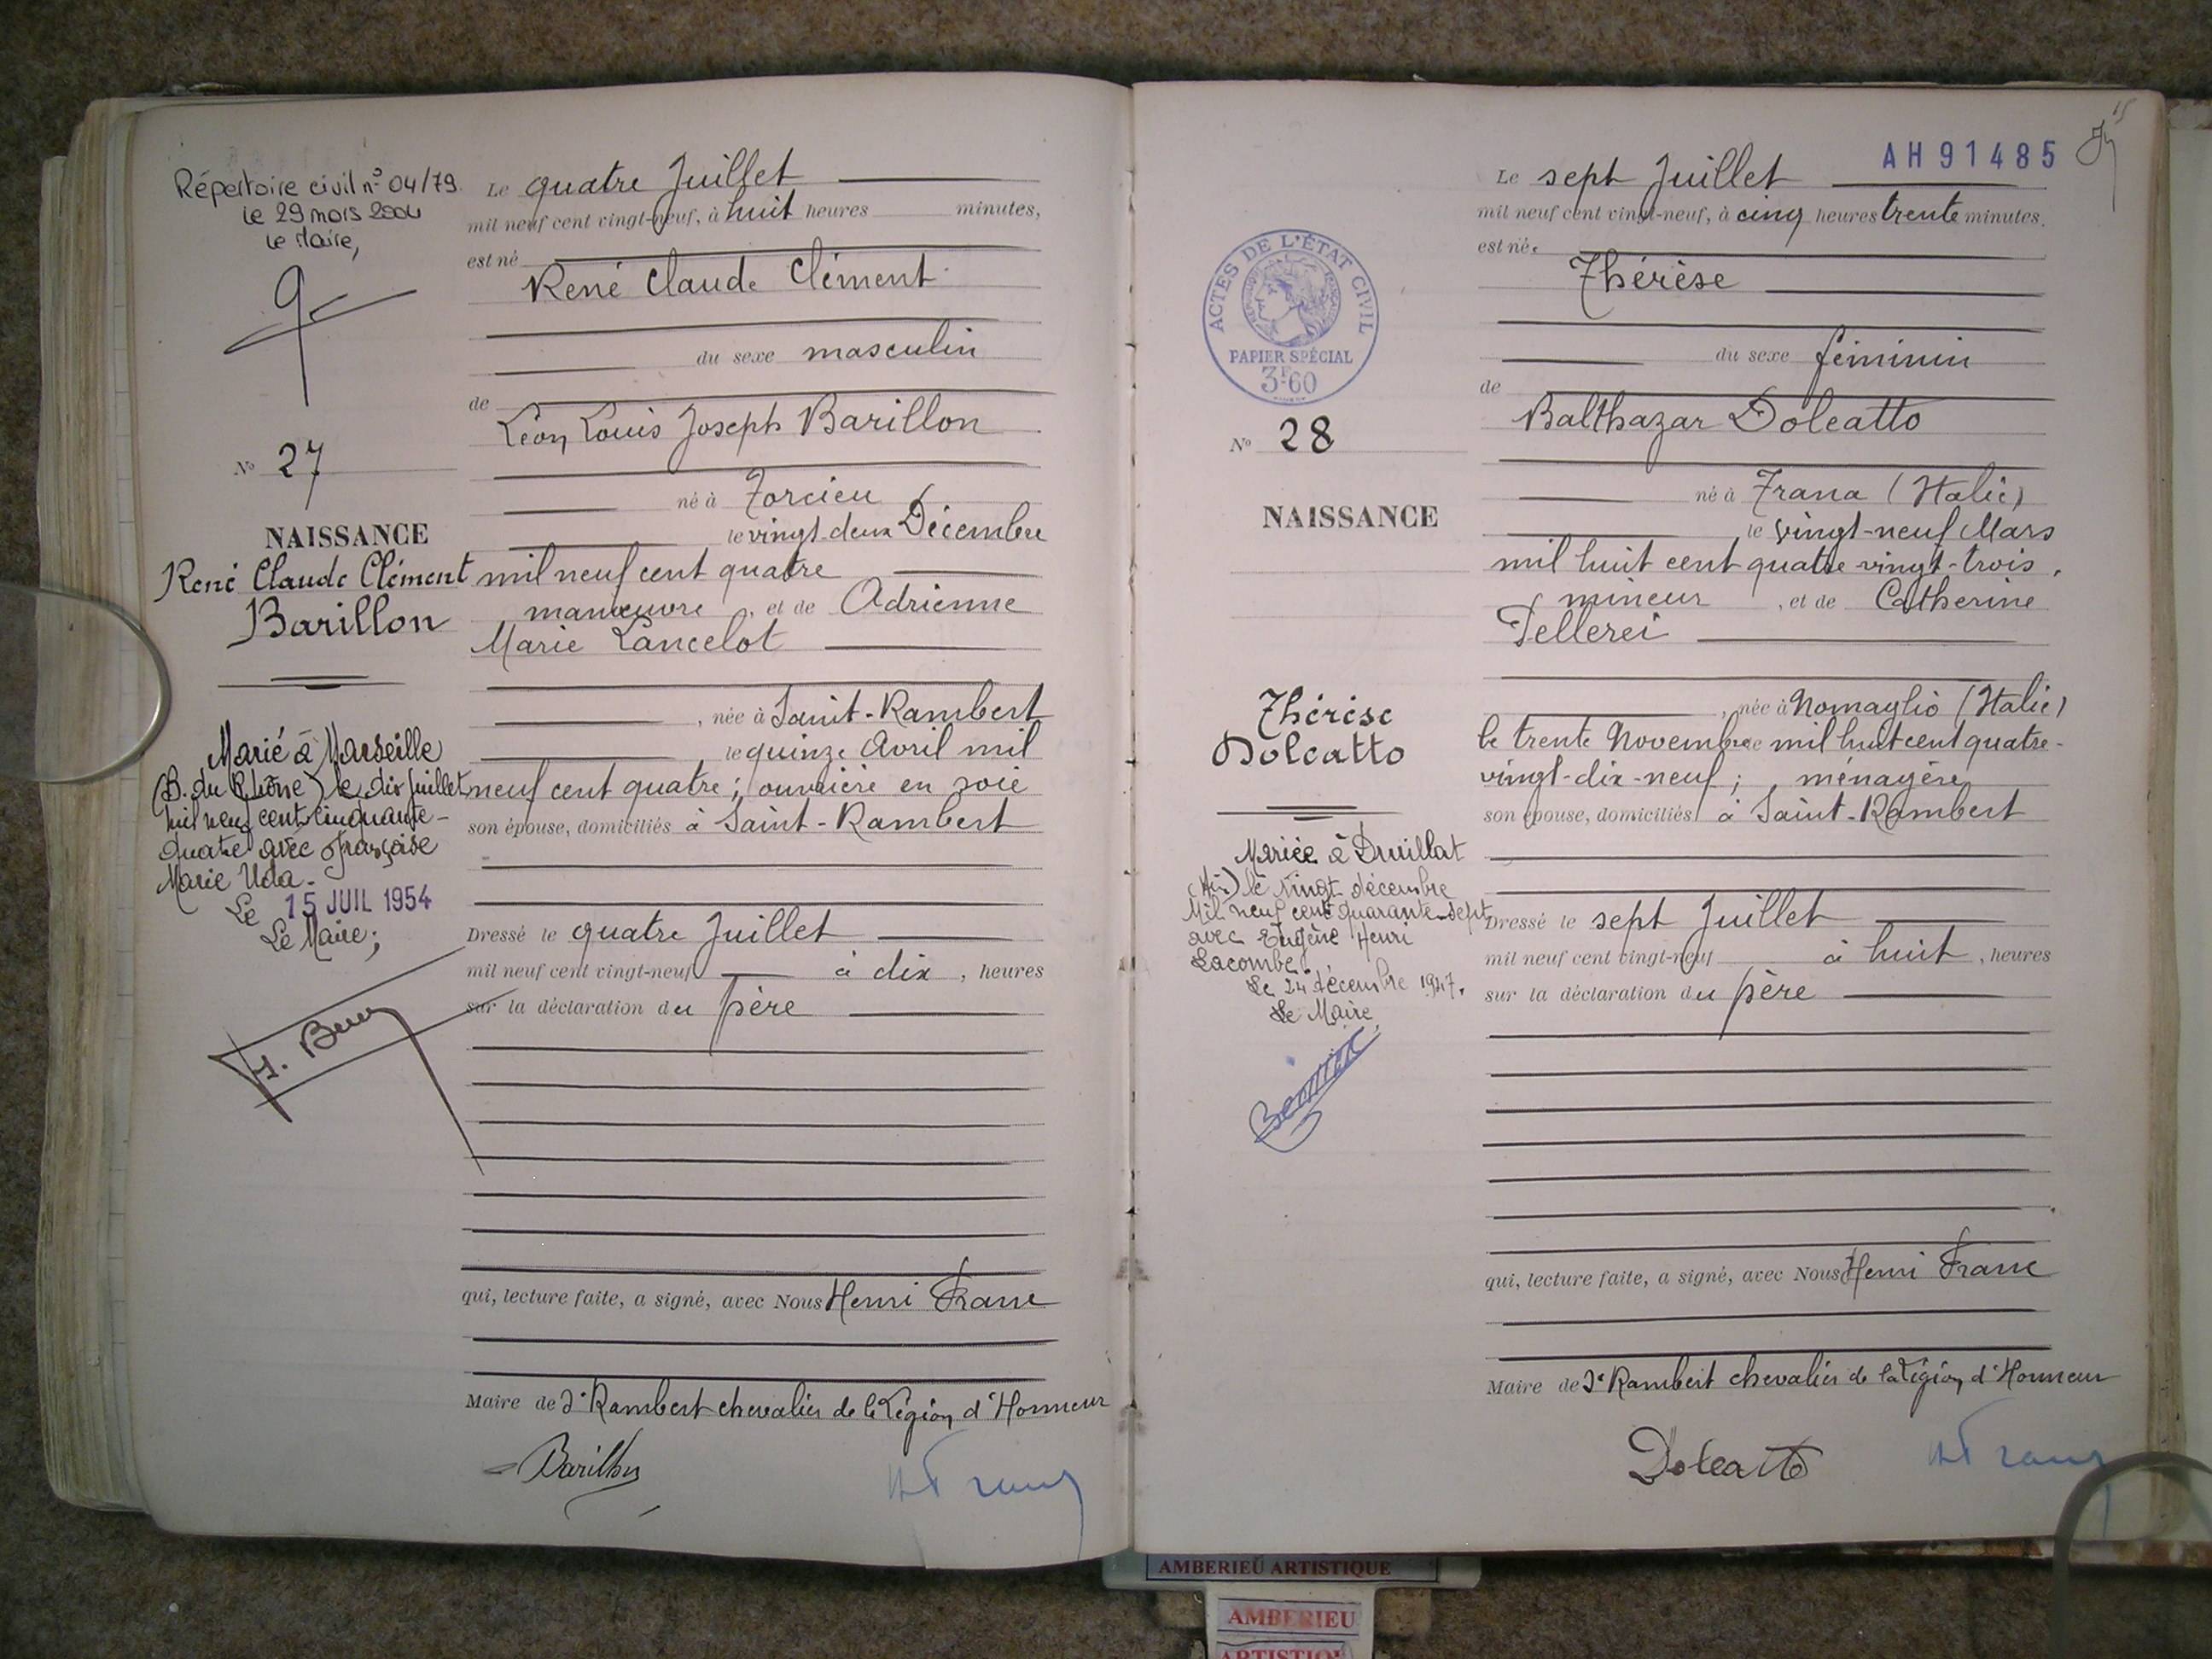 Répertoire civil n° 04/79
le 29 mars 2004
Le Maire,
N° 27
NAISSANCE
René Claude Clément
Barillon
Marié à Marseille
(B. du Rhône) le dix juillet
mil neuf cent cinquante-
quatre avec Françoise
Marie Uda.
Le 15 JUIL 1954
Le Maire;
Le quatre Juillet
mil neuf cent vingt-neuf, à huit heures minutes,
est né
René Claude Clément
du sexe masculin
de
Léon Louis Joseph Barillon
né à Torcieu
le vingt deux Décembre
mil neuf cent quatre
manœuvre, et de Adrienne
Marie Lancelot
, née à Saint-Rambert
le quinze Avril mil
neuf cent quatre; ouvrière en soie
son épouse, domiciliés à Saint-Rambert
Dressé le quatre Juillet
mil neuf cent vingt-neuf à dix, heures
sur la déclaration du père
qui, lecture faite, a signé, avec Nous Henri Franc
Maire de St Rambert chevalier de la Légion d'Honneur
Barillon
H Franc
AH 91485
ACTES DE L'ÉTAT CIVIL
PAPIER SPÉCIAL
3F.60
N° 28
NAISSANCE
Thérèse
Dolcatto
Mariée à Druillat
(Ain) le vingt décembre
Mil neuf cent quarante-sept
avec Eugène Henri
Lacombe.
Le 24 décembre 1947.
Le Maire
Le sept Juillet
mil neuf cent vingt-neuf, à cinq heures trente minutes.
est née
Thérèse
du sexe féminin
de
Balthazar Dolcatto
né à Trana (Italie)
le vingt-neuf Mars
mil huit cent quatre vingt-trois,
mineur, et de Catherine
Pellerei
, née à Nomaglio (Italie)
le trente Novembre mil huit cent quatre-
vingt-dix-neuf; ménagère
son épouse, domiciliés à Saint-Rambert
Dressé le sept Juillet
mil neuf cent vingt-neuf à huit, heures
sur la déclaration du père
qui, lecture faite, a signé, avec Nous Henri Franc
Maire de St Rambert chevalier de la Légion d'Honneur
Dolcatto
H Franc
AMBERIEU ARTISTIQUE
AMBERIEU
ARTISTIQUE